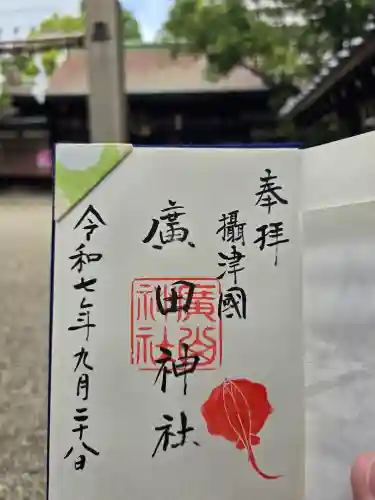 奉拝
攝津國
廣田神社
廣田神社
令和七年九月二十八